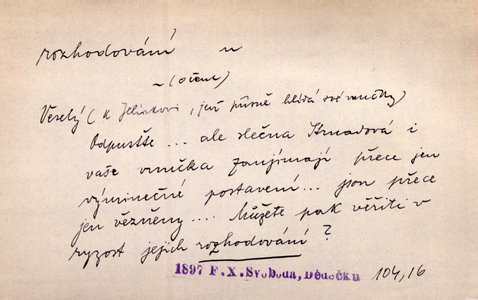 rozhodování n
~ (očem)
Veselý (k Jelínkovi, jenž přísně hlídá své vnučky)
Odpusťte... ale slečna Strnadová i
vaše vnučka zaujímají přece jen
výminečné postavení... jsou přece
jen vězněny.... Můžete pak věřiti v
ryzost jejich rozhodování?
1897 F.X.Svoboda, Dědečku 104,16